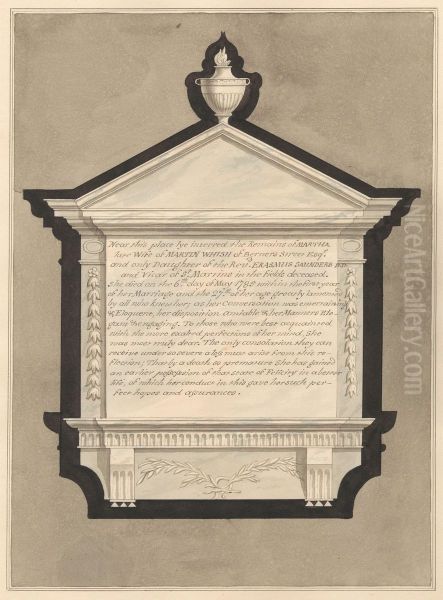 Near this place lye interred the Remains of MARTHA
late Wife of MARTIN WHISH of Berners Street Esqr.
and only Daughter of the Rev. ERASMUS SAUNDERS D.D.
and Vicar of St. Martins in the Fields deceased.
She died on the 6th day of May 1785 within the first year
of her Marriage and the 27th of her age greatly lamented
by all who knew her; as her Conversation was entertaining
& Eloquent, her disposition amiable & her Manners Ele-
gant & engaging. To those who were best acquainted
with the more exalted perfections of her mind. She
was most truly dear. The only consolation they can
receive under so severe a loss must arise from this re-
flection; That by a death so premature She has gained
an earlier possession of that state of Felicity in a better
life, of which her conduct in this gave her such per-
fect hopes and assurances.
www.NiceArtGallery.com